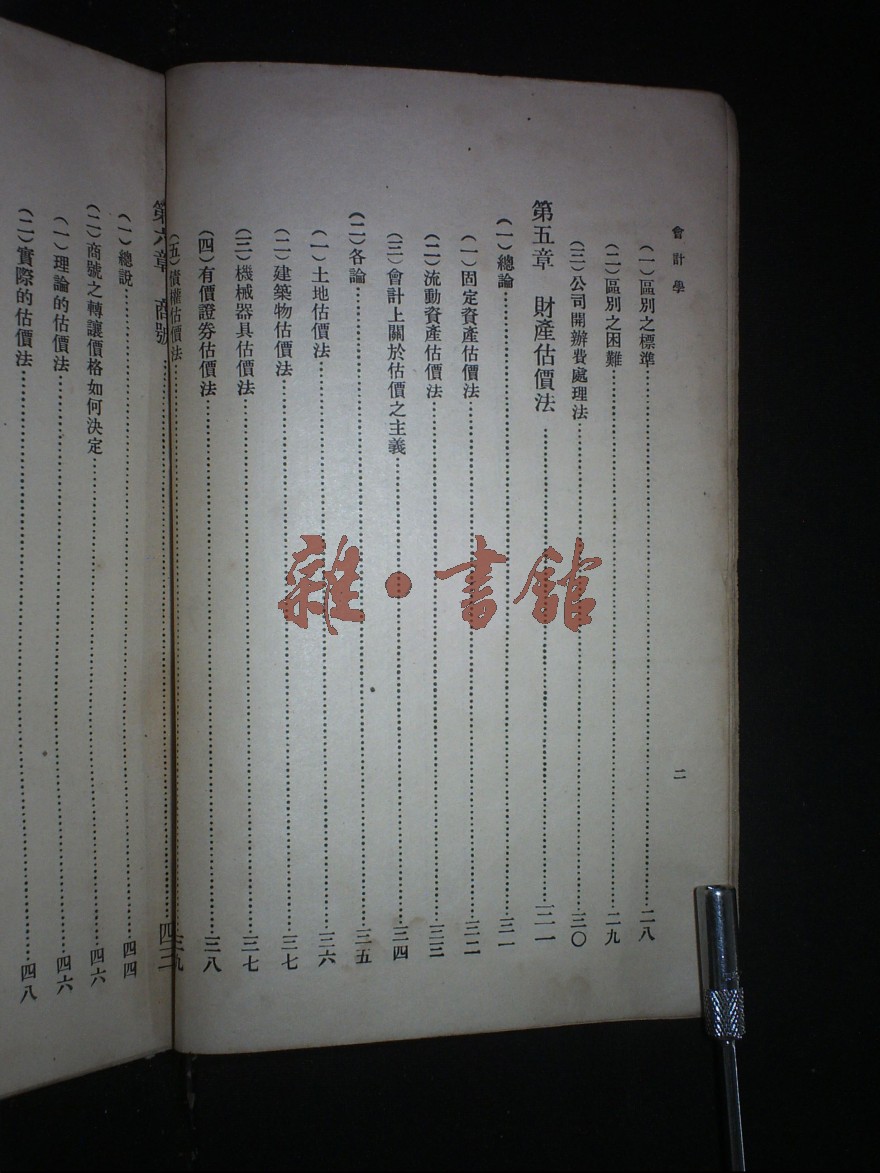 會計學
二
(一)區別之標準……二八
(二)區別之困難……二九
(三)公司開辦費處理法……三〇
第五章 財產估價法……三一
(一)總論……三一
(一)固定資產估價法……三二
(二)流動資產估價法……三三
(三)會計上關於估價之主義……三四
(二)各論……三五
(一)土地估價法……三六
(二)建築物估價法……三七
(三)機械器具估價法……三七
(四)有價證券估價法……三八
(五)債權估價法……三九
第六章 商號……四三
(一)總說……四四
(二)商號之轉讓價格如何決定……四六
(一)理論的估價法……四六
(二)實際的估價法……四八
雜·書館